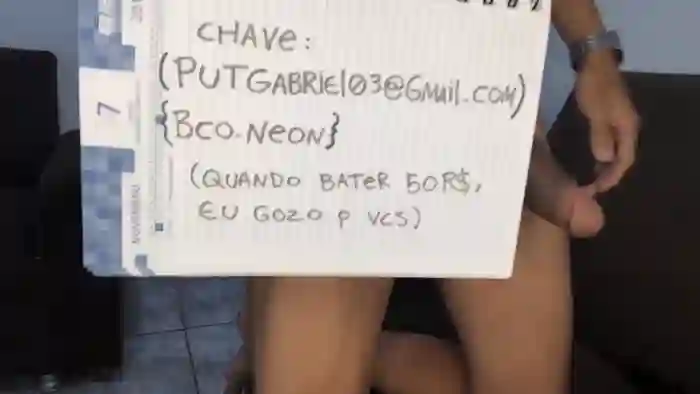 7
CHAVE:
(PUTGABRIEL03@GMAIL.COM)
{BCO.NEON}
(QUANDO BATER 50R$,
EU GOZO P VCS)